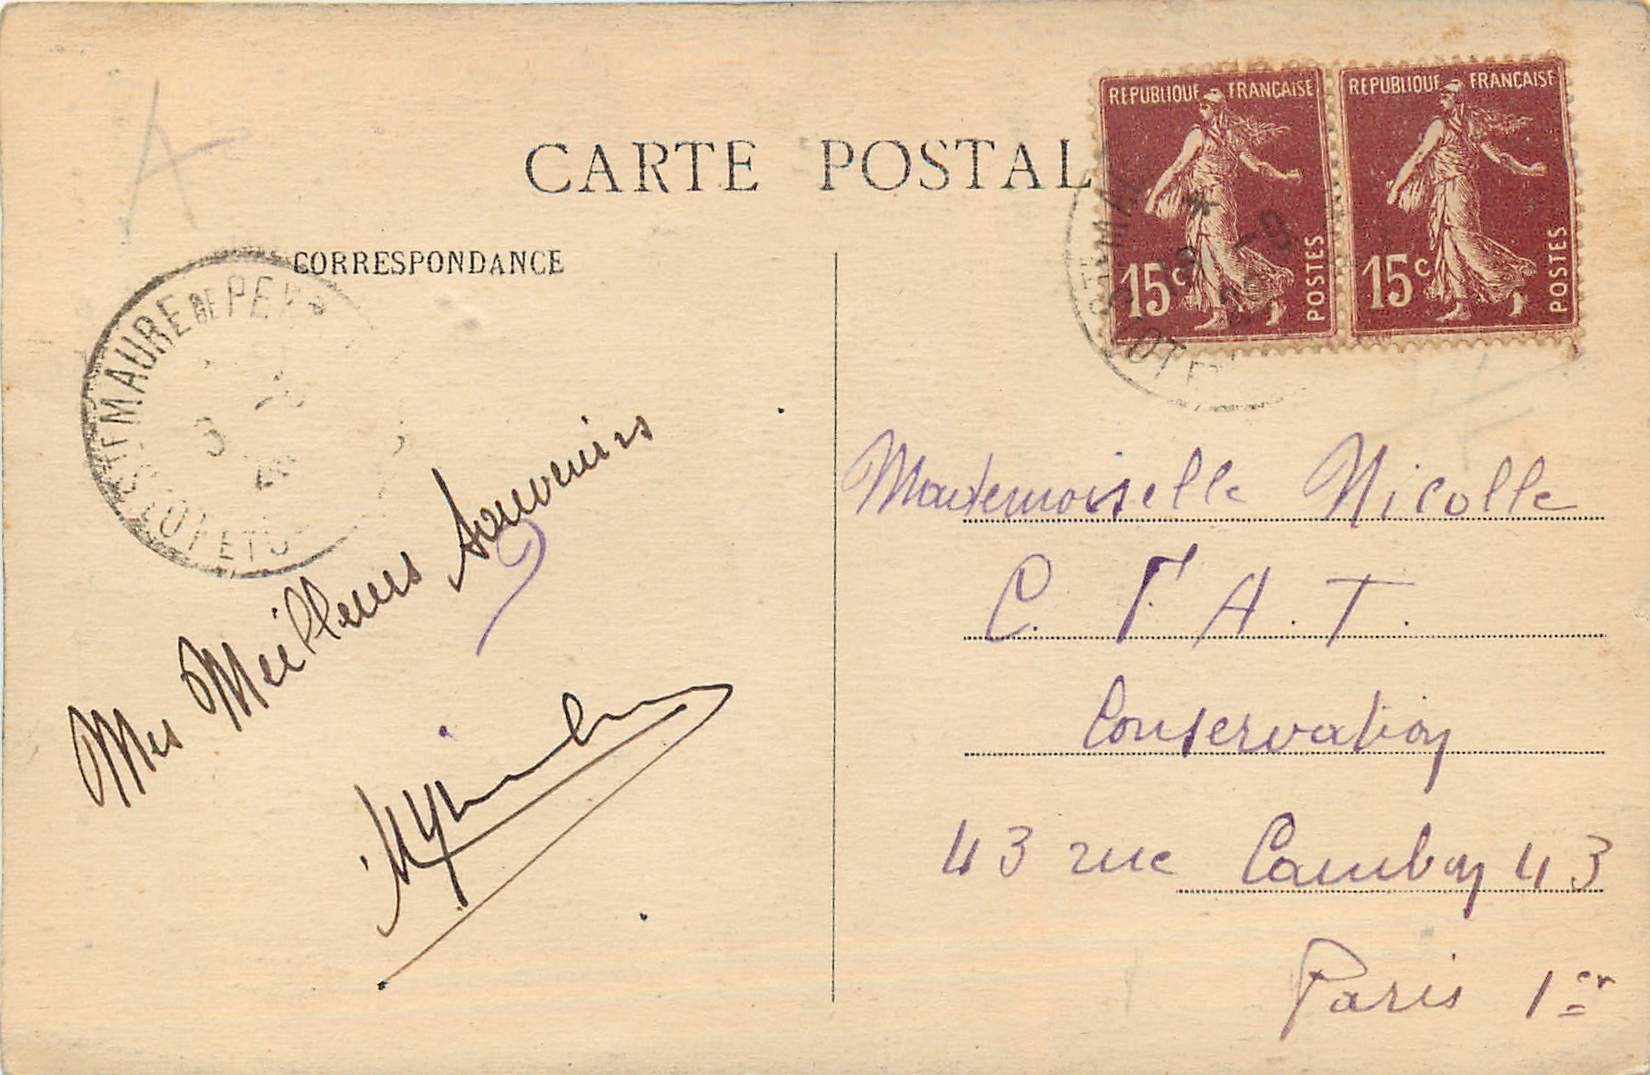 CARTE POSTAL
CORRESPONDANCE
REPUBLIQUE FRANÇAISE
15c POSTES
REPUBLIQUE FRANÇAISE
15c POSTES
STE MAURE DE PEY
LOT ET
Mes Meilleurs Souvenirs
Mademoiselle Nicolle
C. F. A. T.
Conservation
43 rue Cambon 43
Paris 1er